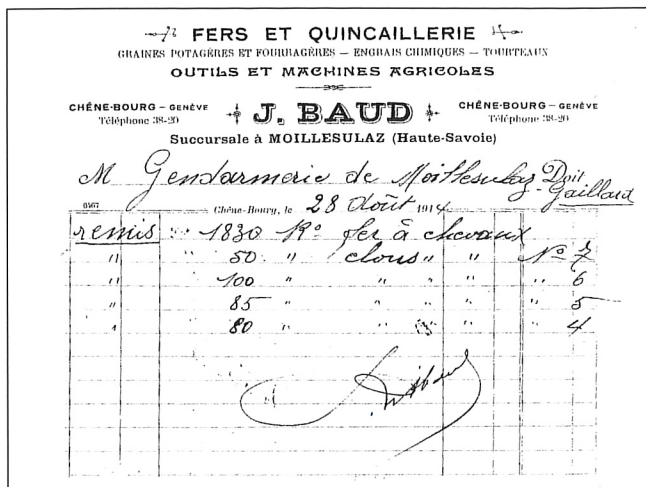 FERS ET QUINCAILLERIE
GRAINES POTAGÈRES ET FOURRAGÈRES — ENGRAIS CHIMIQUES — TOURTEAUX
OUTILS ET MACHINES AGRICOLES
CHÊNE-BOURG – GENÈVE J. BAUD CHÊNE-BOURG – GENÈVE
Téléphone 38-20 Téléphone 38-20
Succursale à MOILLESULAZ (Haute-Savoie)
M Gendarmerie de Moillesulaz Doit
Gaillard
Chêne-Bourg, le 28 Août 1914
remis 1830 Ko fer à chevaux
" " 50 " clous " " No 7
" " 100 " " " " " 6
" " 85 " " " " " 5
" " 80 " " " " " 4